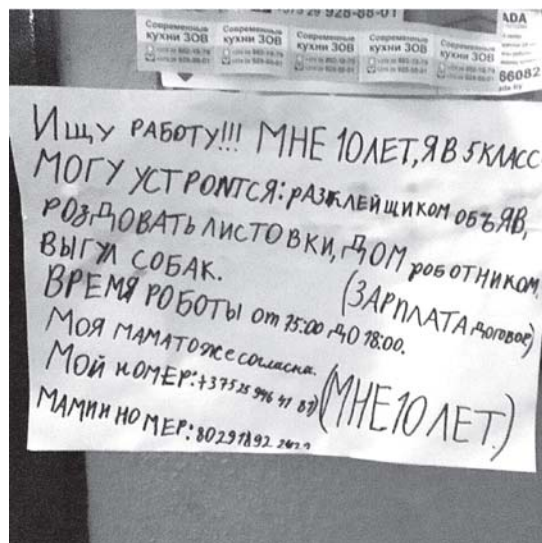 +375 29 928-88-01
ADA
Современные кухни ЗОВ
Современные кухни ЗОВ
Современные кухни ЗОВ
Современные кухни ЗОВ
Современные кухни ЗОВ
66082
Ищу РАБОТУ!!! МНЕ 10 ЛЕТ, Я В 5 КЛАСС
МОГУ УСТРОИТСЯ: РАЗКЛЕЙЩИКОМ ОБЪЯВ,
РОЗДОВАТЬ ЛИСТОВКИ, ДОМ РОБОТНИКОМ,
ВЫГУЛ СОБАК. (ЗАРПЛАТА договор)
ВРЕМЯ РОБОТЫ от 15:00 ДО 18:00.
Моя МАМА ТОЖЕ согласна.
Мой НОМЕР: (МНЕ 10 ЛЕТ.)
МАМИН НОМЕР: